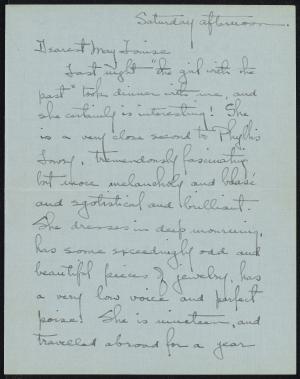 Saturday afternoon.
Dearest May Louise
Last night "the girl with the
past" took dinner with me, and
she certainly is interesting! She
is a very close second to Phyllis
tremendously fascinating
but more melancholy and blasé
and egotistical and brilliant.
She dresses in deep mourning,
has some exceedingly odd and
beautiful pieces of jewelry, has
a very low voice and perfect
poise! She is nineteen, and
travelled abroad for a year